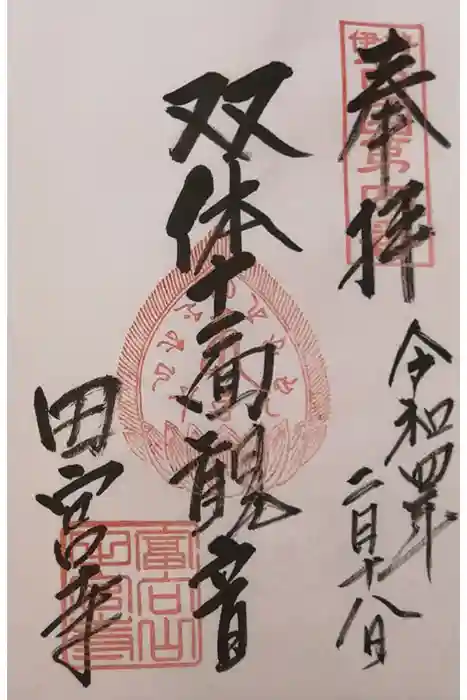 奉拝
令和四年
二月十八日
双体十一面観音
田宮寺
富向山
田宮寺